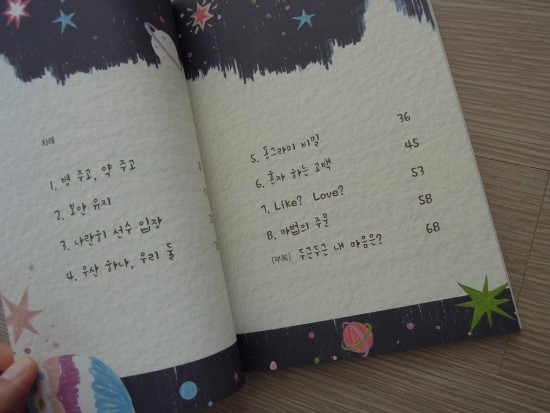 차례
1. 병 주고, 약 주고
2. 보안 유지
3. 나란히 선수 입장
4. 우산 하나, 우리 둘
5. 동그라미 비밀 36
6. 혼자 하는 고백 45
7. Like? Love? 53
8. 마법의 주문 58
[부록] 두근두근 내 마음은? 68